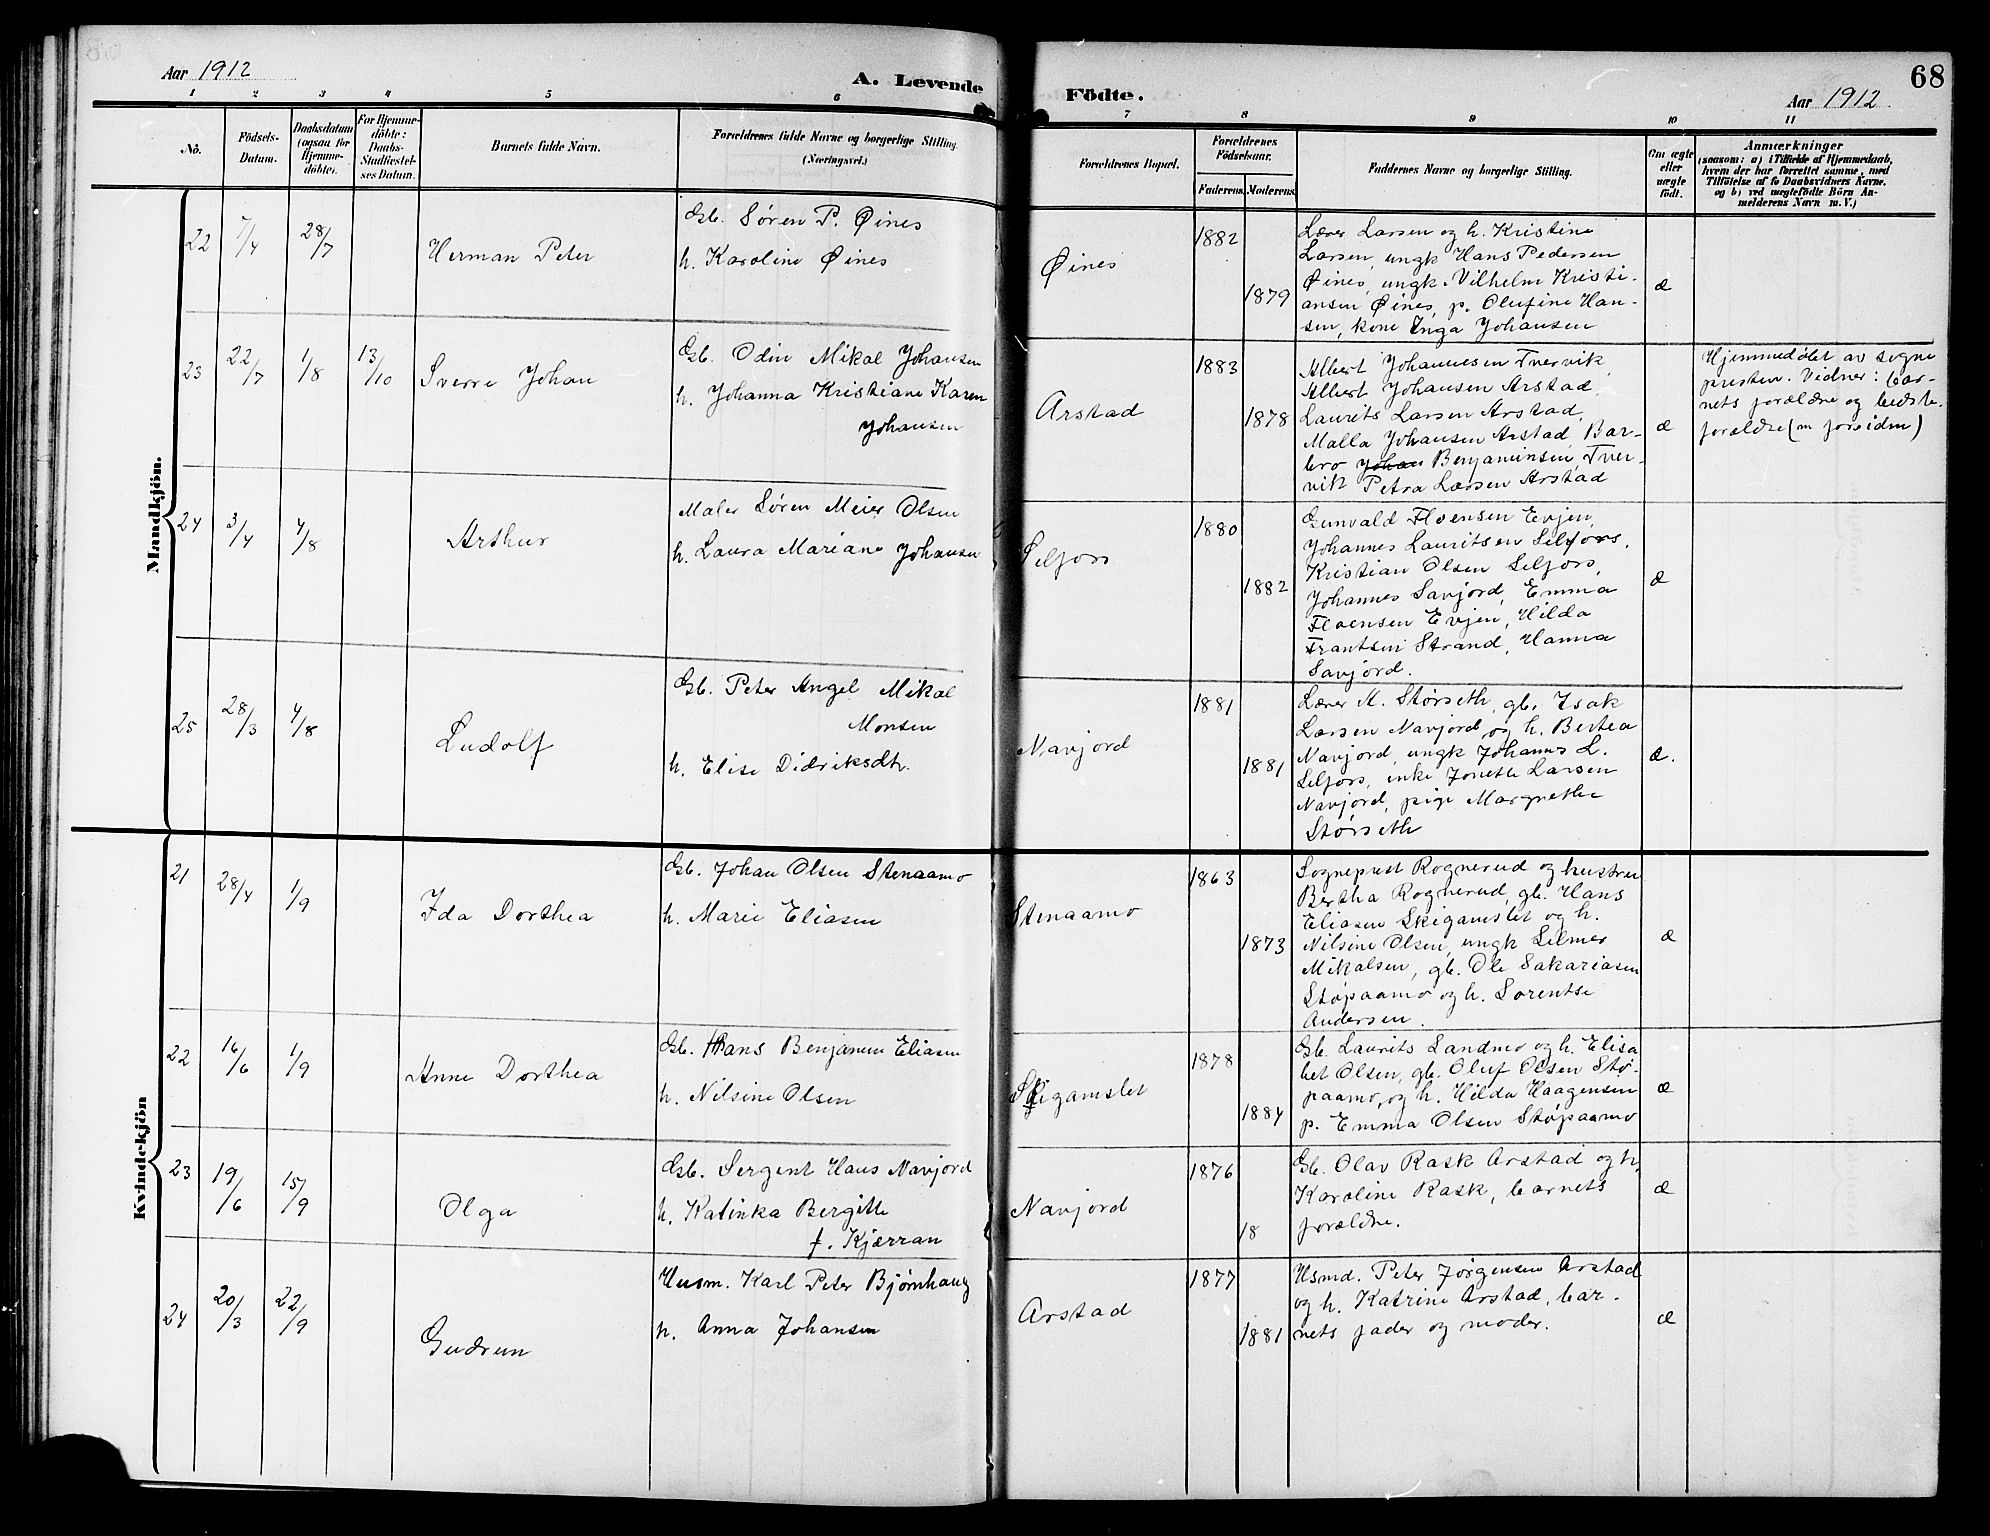 68
Aar 1912
A. Levende
Födte.
Aar 1912
1 2 3 4 5 6 7 8 9 10 11
No.
Födsels-
Datum.
Daabsdatum
(ogsaa for
Hjemme-
döbte).
For Hjemme-
döbte:
Daabs-
Stadfæstel-
ses Datum.
Barnets fulde Navn.
Forældrenes fulde Navne og borgerlige Stilling.
(Næringsvei.)
Forældrenes Bopæl.
Forældrenes
Födselsaar.
Faderens.
Moderens.
Faddernes Navne og borgerlige Stilling.
Om ægte
eller
uægte
födt.
Anmærkninger
(saasom: a) i Tilfælde af Hjemmedaab,
hvem der har forrettet samme, med
Tilföielse af to Daabsvidners Navne.
og b) ved uægtefödte Börn An-
melderens Navn m. V.)
Mandkjön.
22
7/4
28/7
Herman Peter
Gb. Søren P. Øines
h. Karoline Øines
Øines
1882
1879
Lærer Larsen og h. Kristine
Larsen, ungk Hans Pedersen
Øines, ungk. Vilhelm Kristi-
ansen Øines, p. Olufine Han-
sen, kone Inga Johansen
æ
23
22/7
1/8
13/10
Sverre Johan
Gb. Odin Mikal Johansen
h. Johanna Kristiane Karen
Johansen
Arstad
1883
1878
Albert Johannesen Tvervik,
Albert Johansen Arstad,
Laurits Larsen Arstad,
Malla Johansen Arstad, Bar-
bro Johan Benjaminsen Tver-
vik Petra Larsen Arstad
æ
Hjemmedøbt av sogne
presten. Vidner: bar-
nets forældre og bedste-
forældre (m forsiden)
24
3/4
4/8
Arthur
Maler Søren Meier Olsen
h. Laura Mariane Johansen
Selfors
1880
1882
Gunvald Floensen Evjen,
Johannes Lauritsen Selfors,
Kristian Olsen Selfors,
Johannes Savjord, Emma
Floensen Evjen, Hilda
Frantsen Strand, Hanna
Savjord.
æ
25
28/3
4/8
Ludolf
Gb. Peter Angel Mikal
Monsen
h. Elise Didriksdtr.
Navjord
1881
1881
Lærer M. Størseth, gb. Isak
Larsen Navjord, og h. Bertea
Navjord, ungk Johannes L.
Selfors, enke Jonette Larsen
Navjord, pige Margrethe
Størseth
æ.
Kvindekjön
21
28/4
1/9
Ida Dorthea
Gb. Johan Olsen Stenaamo
h. Marie Eliasen
Stenaamo
1863
1873
Sogneprest Rognerud og hustru
Bertha Rognerud, gb. Hans
Eliasen Skigamslet og h.
Nilsine Olsen, ungk Selmer
Mikalsen, gb. Ole Sakariasen
Støpaamo og h. Lorentse
Andersen.
æ
22
16/6
1/9
Anne Dorthea
Gb. Hans Benjamin Eliasen
h. Nilsine Olsen
Skigamslet
1878
1884
Gb. Laurits Landmo og h. Elisa
bet Olsen, gb. Oluf Olsen Stø-
paamo, og h. Hilda Haagensen
p. Emma Olsen Støpaamo
æ
23
19/6
15/9
Olga
Gb. Sergent Hans Navjord
h. Katinka Bergitte
f. Kjærran
Navjord
1876
18
Gb. Olav Rask Arstad og h.
Karoline Rask, barnets
forældre.
æ
24
20/3
22/9
Gudrun
Husm. Karl Peter Bjørnhaug
h. Anna Johansen
Arstad
1877
1881
Hsmd. Peter Jørgensen Arstad
og h. Katrine Arstad, bar-
nets fader og moder.
æ